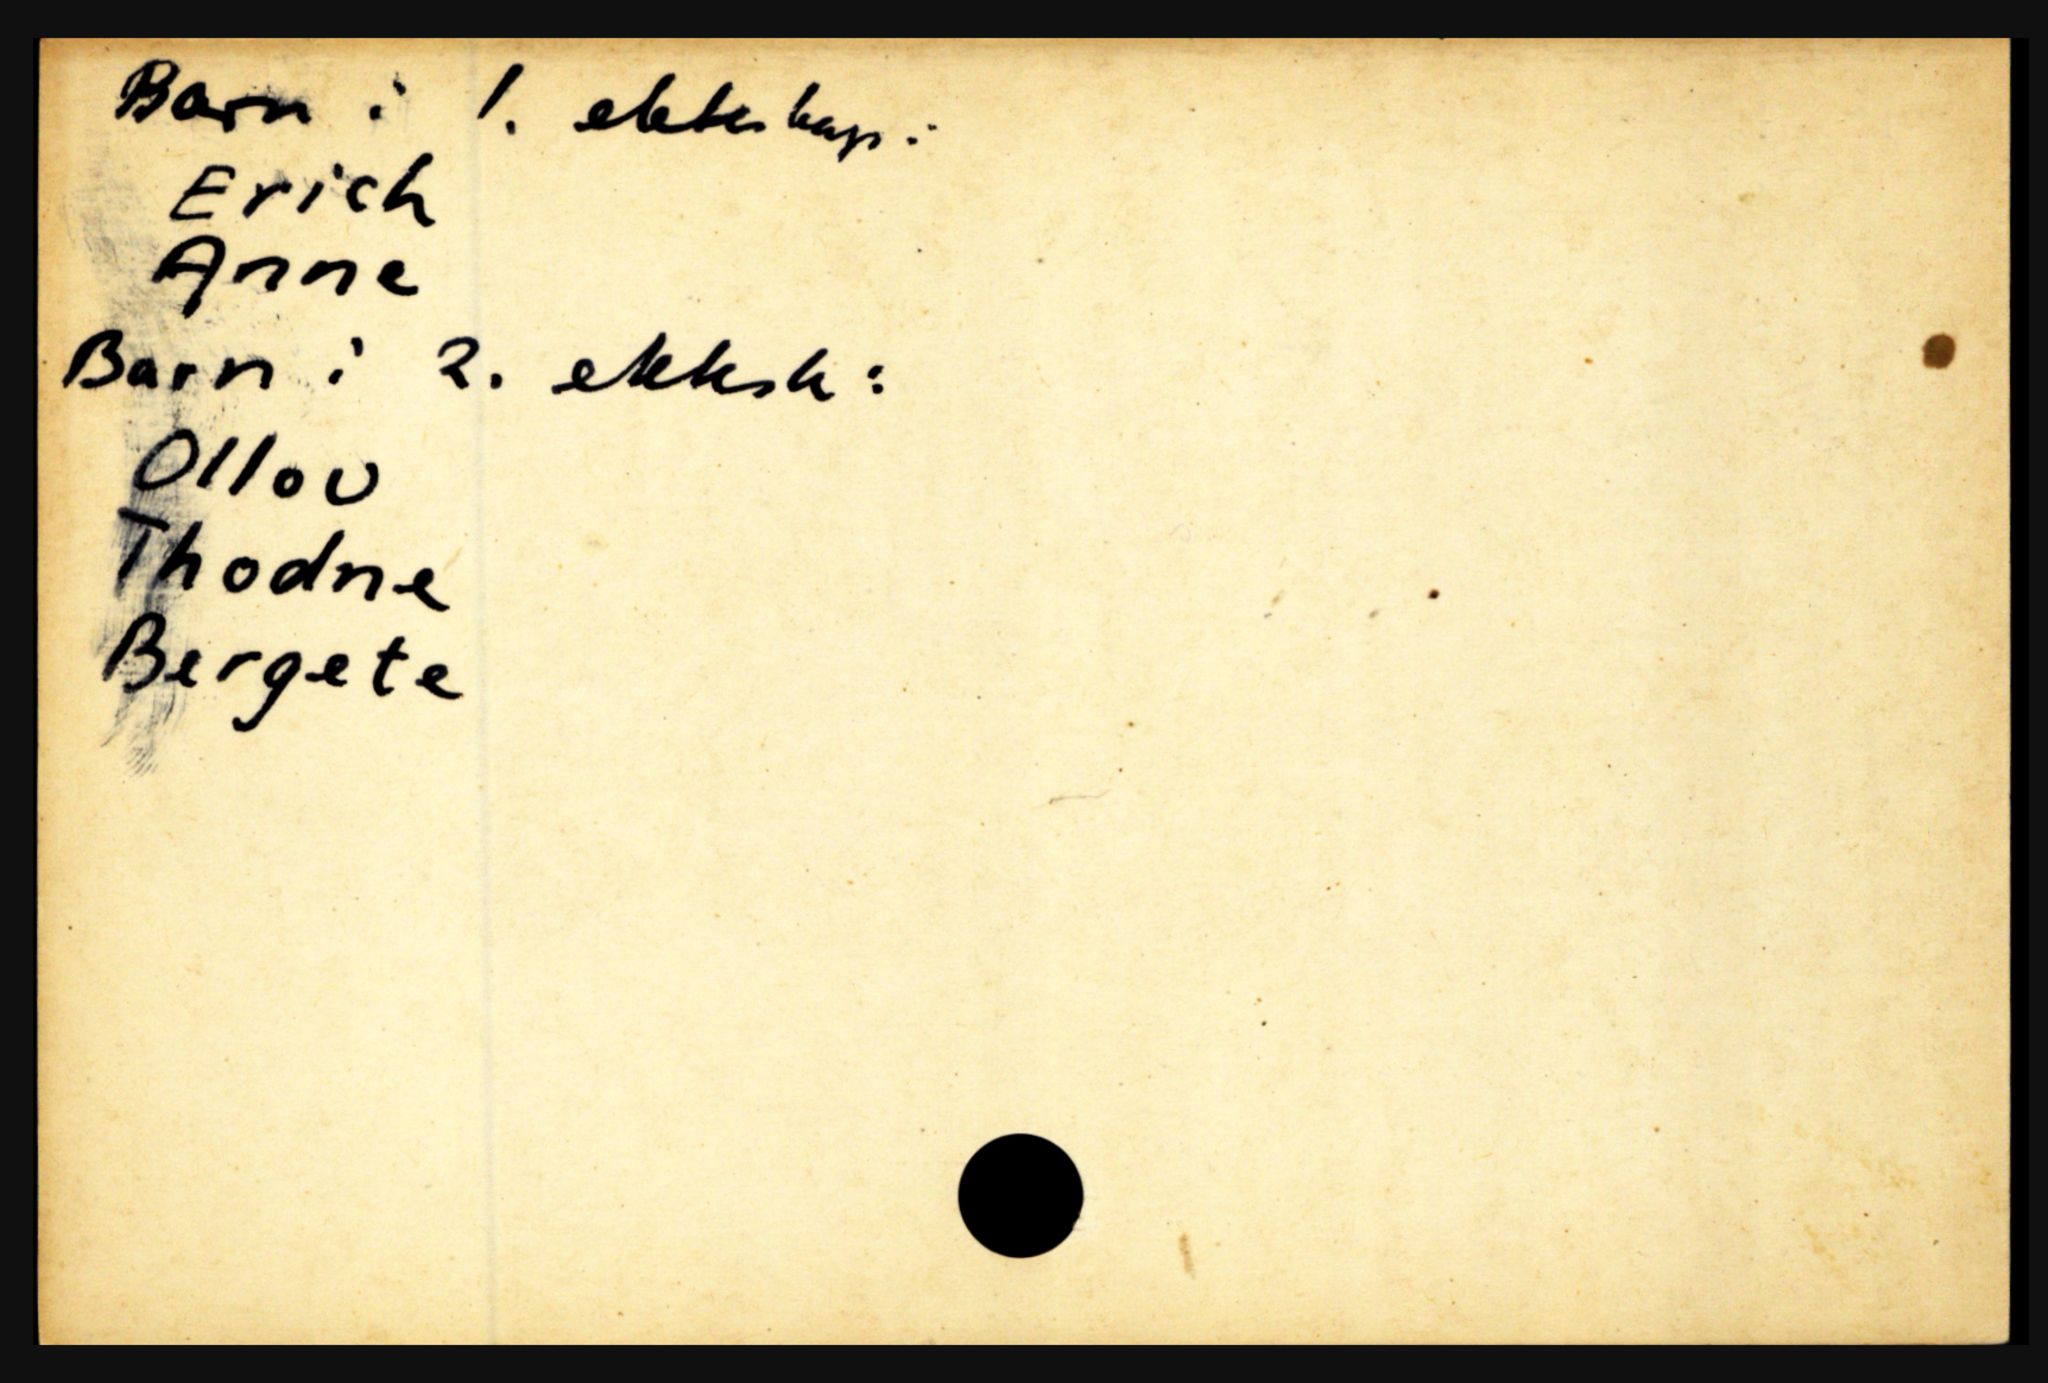 Barn i 1. ekteskap:
Erich
Anne
Barn i 2. ektesk:
Ollov
Thodne
Bergete